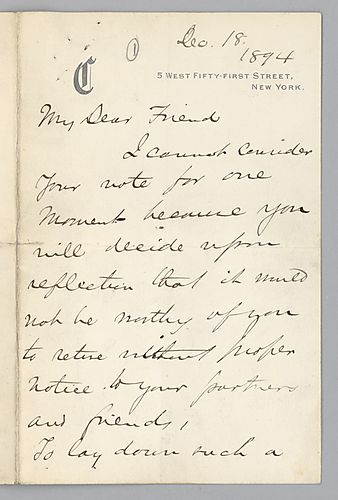 ①
Dec. 18.
1894
C
5 WEST FIFTY-FIRST STREET,
NEW YORK.
My Dear Friend
I cannot consider
your note for one
moment because you
will decide upon
reflection that it would
not be worthy of you
to retire without proper
notice to your partners
and friends,
To lay down such a